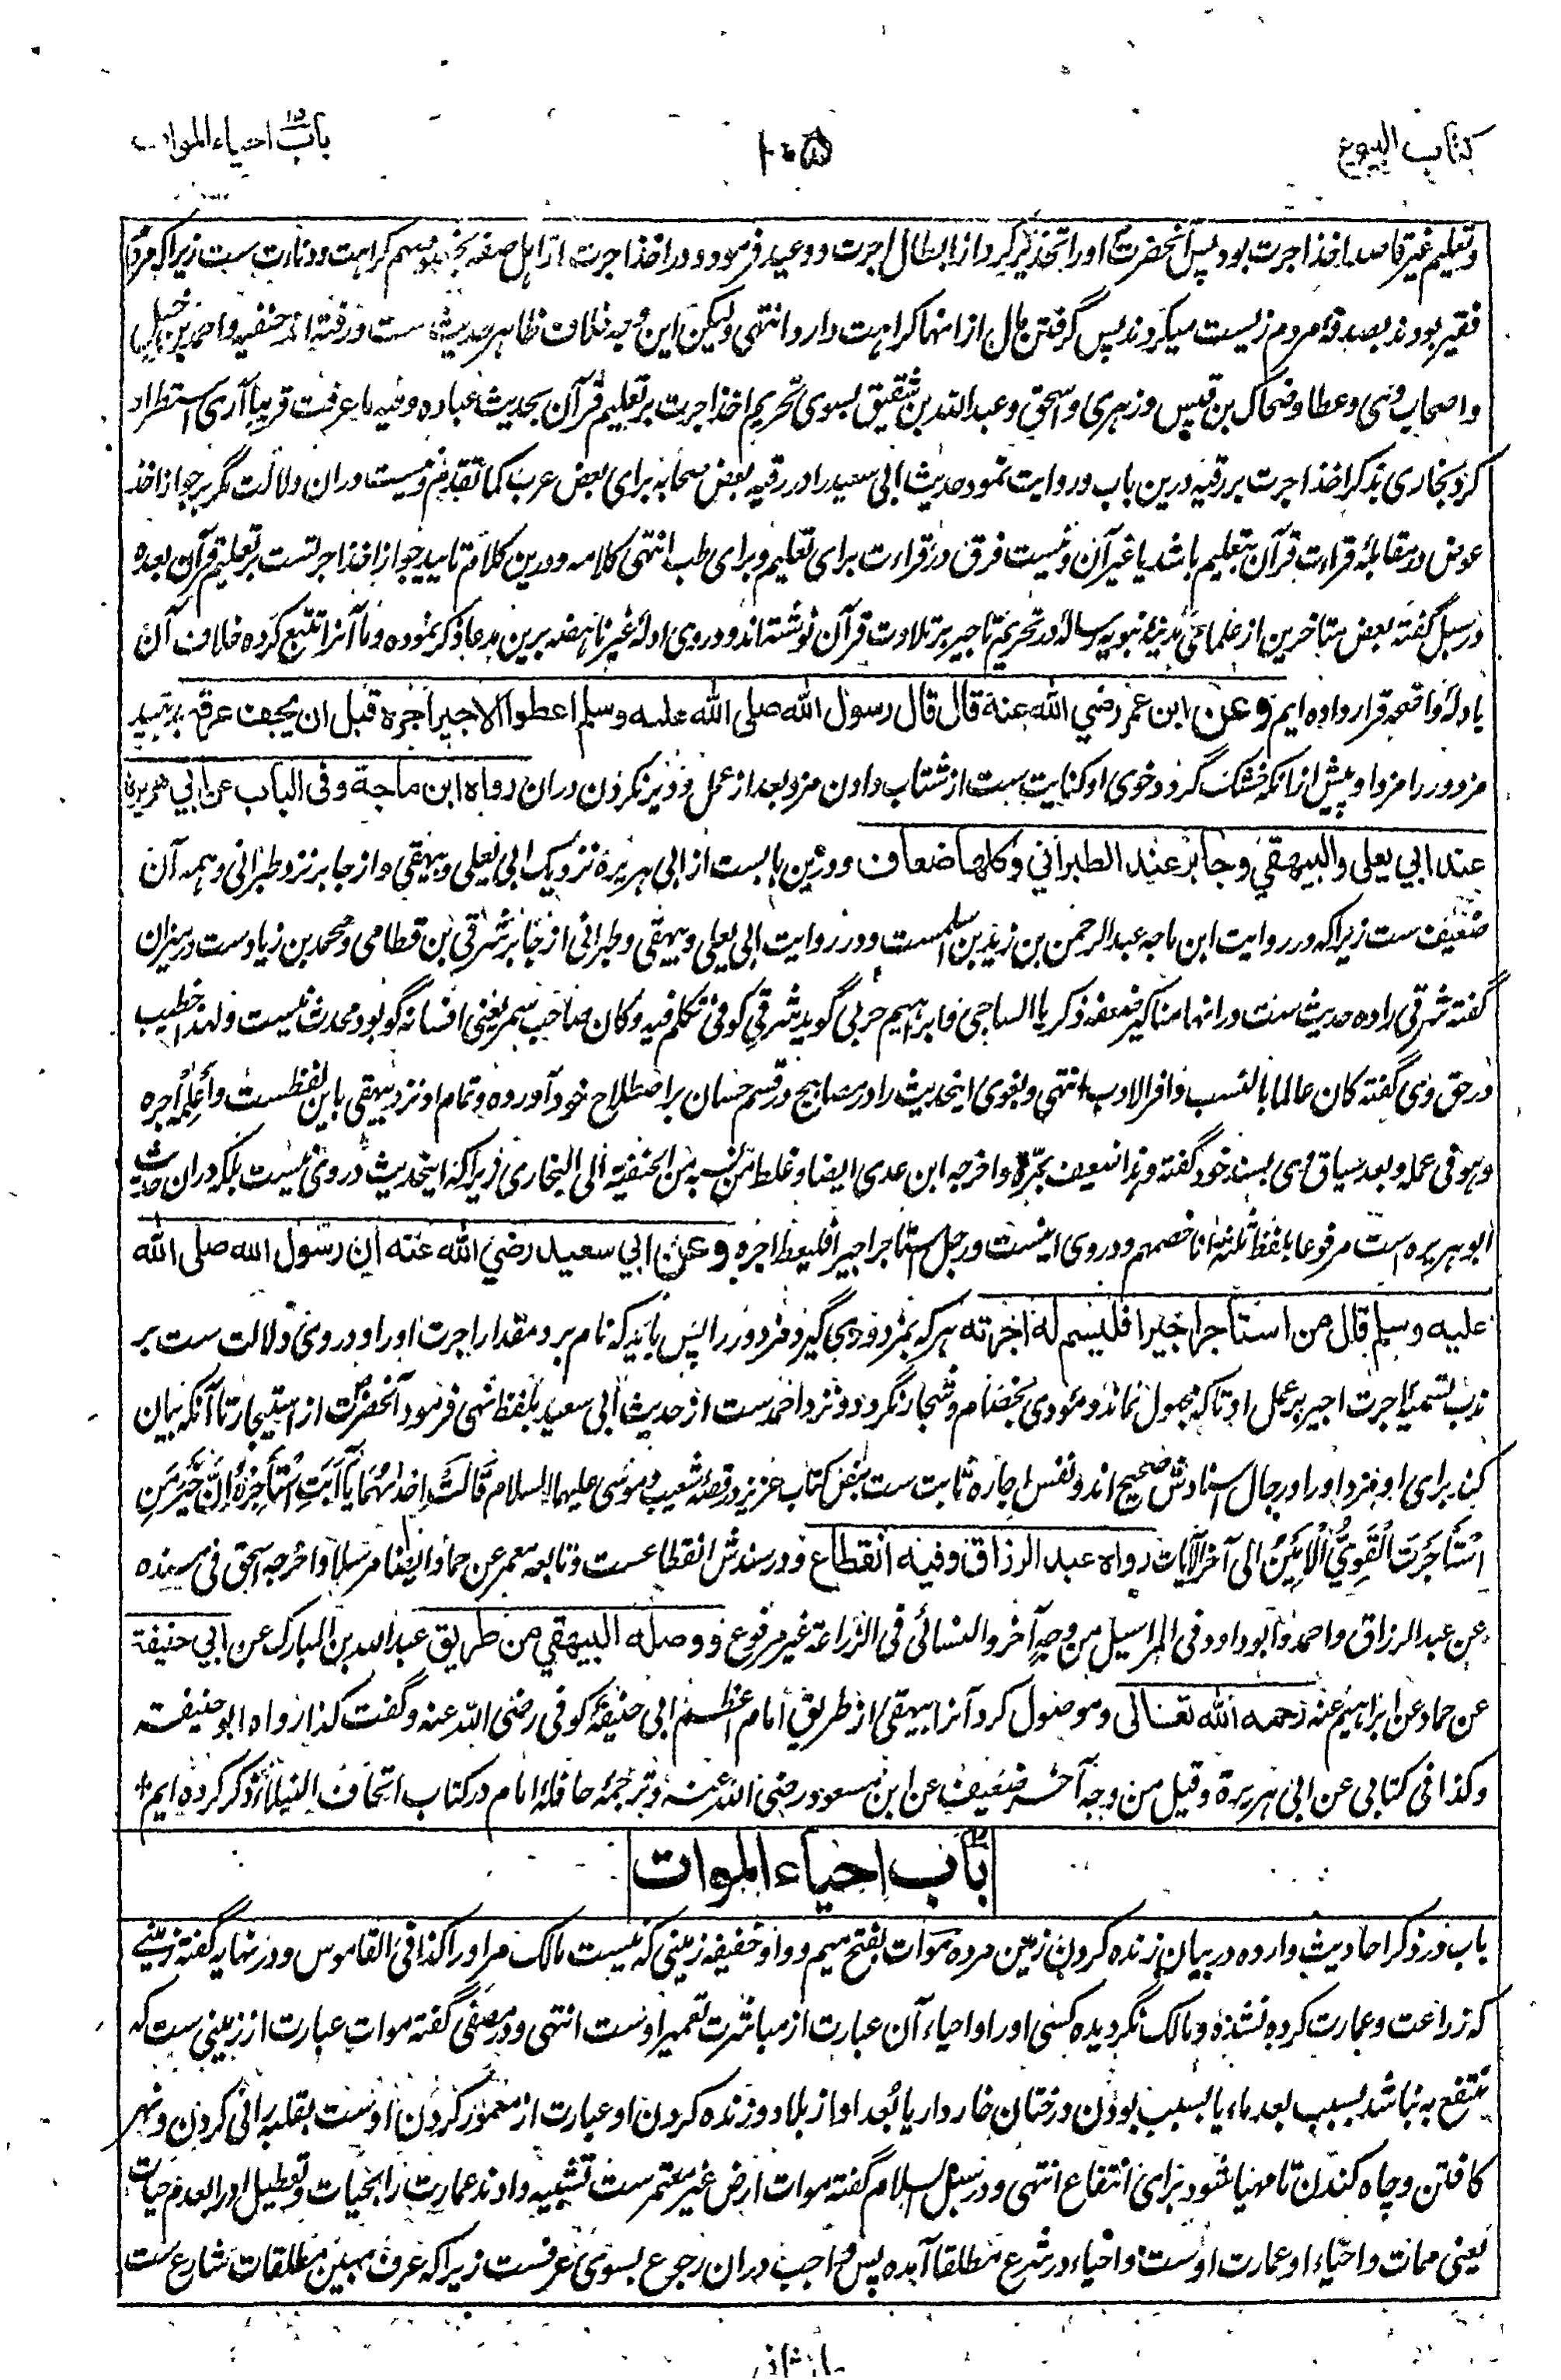 کتاب البیوع
۱۰۵
باب احیاء الموات
وتعلیم غیر قاصد اخذ اجرت بود پس آنحضرت اورا تحذیر کرد از ابطال اجرت و وعید فرمود و در اخذ اجرت از اہل صفہ بخصوصہم کراہت و دنائت ست زیرا کہ مردم
فقیر بودند بصدقۂ مردم زیست میکردند پس گرفتن مال از انہا کراہت دارد انتہی ولیکن این وجہ خلاف ظاہر حدیث ست و رفتہ اند حنفیہ و احمد بن حنبل
و اصحاب وی و عطا و ضحاک بن قیس و زہری و اسحق و عبداللہ بن شقیق بسوی تحریم اخذ اجرت بر تعلیم قرآن بحدیث عبادہ و فیہ ما عرفت قریبا آری استطراد
کرد بخاری بذکر اخذ اجرت بر رقیہ درین باب و روایت نمود حدیث ابی سعید را در رقیہ بعض صحابہ برای بعض عرب کما تقدم و نیست دران دلالت مگر بر جواز اخذ
عوض در مقابلۂ قراءت قرآن بتعلیم باشد یا غیر آن و نیست فرق در قراءت برای تعلیم و برای طب انتہی کلامہ و درین کلام تایید جواز اخذ اجرتست بر تعلیم قرآن بعدہ
در سبل گفتہ بعض متاخرین از علمای مدینۂ نبویہ رسالہ در تحریم تاجیر بر تلاوت قرآن نوشتہ اند و دروی ادلۂ غیر ناہضہ برین مدعا ذکر نمودہ و ما آنرا تتبع کردہ خلاف آن
بادلۂ واضحہ قرار دادہ ایم وعن ابن عمر رضي الله عنه قال قال رسول الله صلى الله عليه وسلم اعطوا الاجير اجره قبل ان يجف عرقه بدہید
مزدور را مزد او پیش ازانکہ خشک گردد خوی او کنایت ست از شتاب دادن مزد بعد از عمل و دیر نکردن دران رواه ابن ماجة وفى الباب عن ابي هريرة
عند ابي يعلى والبيهقي وجابر عند الطبراني وكلها ضعاف و درین بابست از ابی ہریرہ نزدیک ابی یعلی و بیہقی و از جابر نزد طبرانی و ہمہ آن
ضعیف ست زیرا کہ در روایت ابن ماجہ عبدالرحمن بن زید بن اسلمست و در روایت ابی یعلی و بیہقی و طبرانی از جابر شرقی بن قطامی و محمد بن زیادست در میزان
گفتہ شرقی را دہ حدیث ست در انہا مناکیر ضعفہ زکریا الساجی و ابراہیم حربی گوید شرقی کوفی تکلم فیہ و کان صاحب سمر یعنی افسانہ گو بود محدث نیست و لہذا خطیب
در حق وی گفتہ کان عالما بالنسب وافر الادب انتہی و بغوی اینحدیث را در مصابیح در قسم حسان بر اصطلاح خود آوردہ و تمام او نزد بیہقی باین لفظست و أعلمہ اجرہ
وہو فی عملہ و بعد سیاق وی بسند خود گفتہ و ہذا ضعیف بمرۃ و اخرجہ ابن عدی ایضا و غلط من نسبہ من الحنفیہ الی البخاری زیرا کہ اینحدیث دروی نیست بلکہ دران حدیث
ابوہریرہ است مرفوعا بلفظ ثلثہ انا خصمہم و دروی اینست و رجل استاجر اجیرا فلم یعط اجرہ وعن ابي سعيد رضي الله عنه ان رسول الله صلى الله
عليه وسلم قال من استأجر اجيرا فليسم له اجرته ہر کہ بمزدوری گیرد مزدور را پس باید کہ نام برد مقدار اجرت اورا و دروی دلالت ست بر
ندب تسمیۂ اجرت اجیر بر عمل او تا کہ مجہول نماند و مؤدی بخصام و شجار نگردد و نزد احمدست از حدیث ابی سعید بلفظ نہی فرمود آنحضرت از استیجار تا آنکہ بیان
کند برای او مزد اورا و رجال اسنادش صحیح اند و نفس اجارہ ثابت ست بنص کتاب عزیز در قصۂ شعیب و موسی علیہما السلام قَالَتْ اِحْدٰىهُمَا يٰٓاَبَتِ اسْتَأْجِرْهُ اِنَّ خَيْرَ مَنِ
اسْتَأْجَرْتَ الْقَوِيُّ الْاَمِيْنُ الی آخر الآیات رواه عبد الرزاق وفيه انقطاع و در سندش انقطاعست و تابعہ معمر عن حماد ایضا مرسلا و اخرجہ اسحق فی مسندہ
عن عبدالرزاق و احمد و ابوداود فی المراسیل من وجہ آخر والنسائی فی الزراعۃ غیر مرفوع ووصله البيهقي من طريق عبد الله بن المبارك عن ابي حنيفة
عن حماد عن ابراہیم عنہ رحمه الله تعالى و موصول کرد آنرا بیہقی از طریق امام اعظم ابی حنیفۂ کوفی رضی اللہ عنہ و گفت کذا رواہ ابوحنیفہ
وکذا فی کتابی عن ابی ہریرۃ وقیل من وجہ آخر ضعیف عن ابن مسعود رضی اللہ عنہ و ترجمۂ حافلۂ امام در کتاب اتحاف النبلاء ذکر کردہ ایم
باب احياء الموات
باب در ذکر احادیث واردہ در بیان زندہ کردن زمین مردہ موات بفتح میم و واو خفیفہ زمینی کہ نیست مالک مر اورا کذا فی القاموس و در نہایہ گفتہ زمینے
کہ زراعت و عمارت کردہ نشدہ و مالک نگردیدہ کسی اورا و احیاء آن عبارت از مباشرت تعمیر اوست انتہی و در مصفی گفتہ موات عبارت از زمینی ست کہ
منتفع بہ نباشد بسبب بعد ماء یا بسبب بودن درختان خاردار یا بُعد او از بلاد و زندہ کردن او عبارت از معمور کردن اوست بقلبہ رانی کردن و نہر
کافتن و چاہ کندن تا مہیا شود برای انتفاع انتہی و در سبل السلام گفتہ موات ارض غیر معتمرست تشبیہ دادند عمارت را بحیات و تعطیل اورا بعدم حیات
یعنی ممات و احیاء او عمارت اوست و احیاء در شرع مطلقا آمدہ پس واجب دران رجوع بسوی عرفست زیرا کہ عرف مبین مطلقات شارع ست